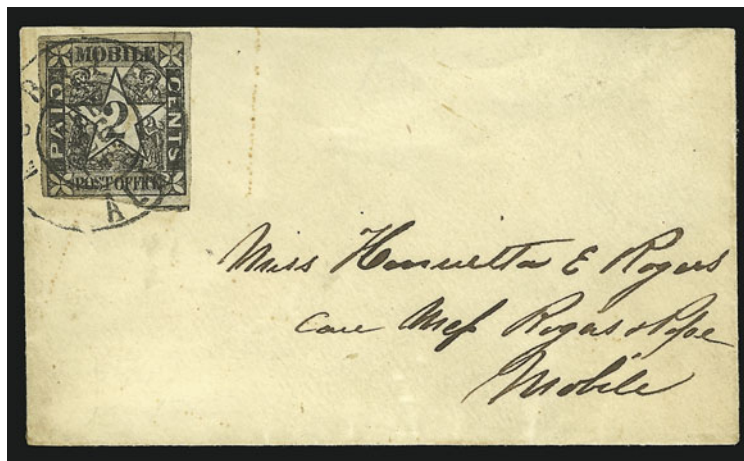 MOBILE
PAID 2 CENTS
POST OFFICE
Miss Henrietta E Rogers
care Mess Rogers & Pope
Mobile